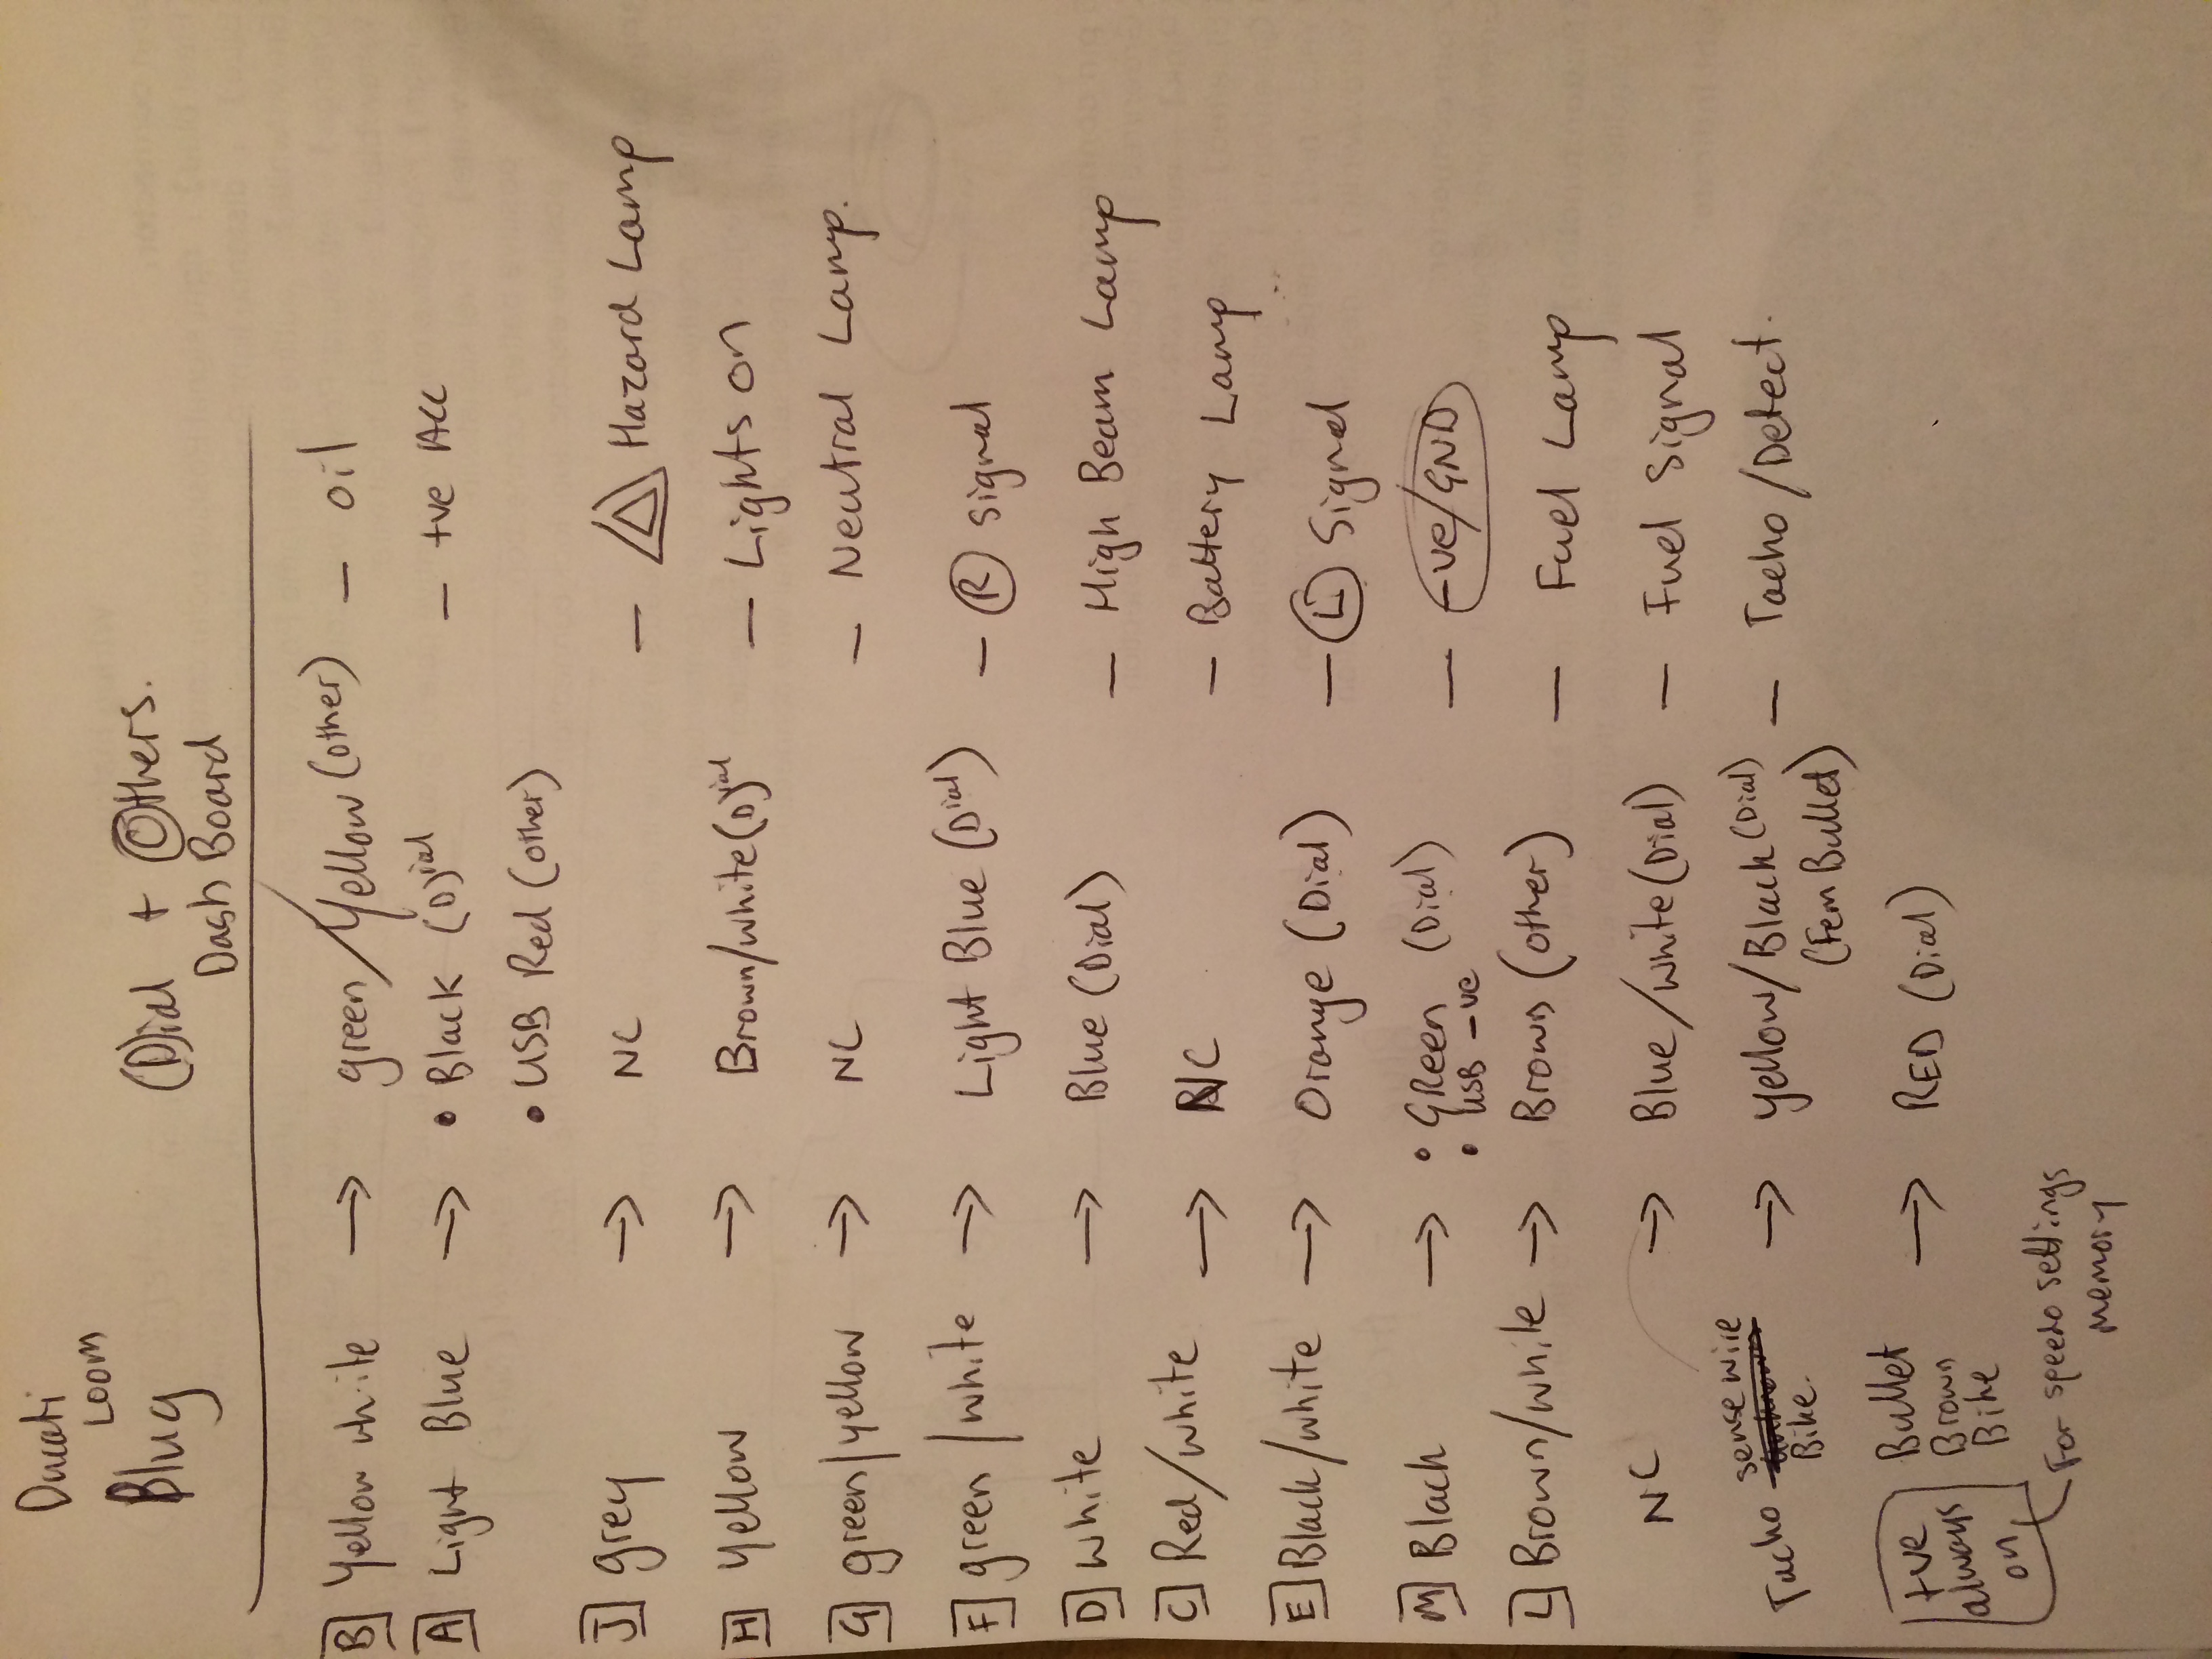 Ducati
Loom
Plug
(D)ial + Others.
Dash Board
B Yellow white → green/Yellow (other) — oil
A Light Blue → • Black (D)ial — +ve Acc
• USB Red (other)
J grey → NC — Hazard Lamp
H Yellow → Brown/white (D)ial — Lights on
G green/yellow → NC — Neutral Lamp.
F green/white → Light Blue (Dial) — R signal
D white → Blue (Dial) — High Beam Lamp
C Red/white → NC — Battery Lamp
E Black/white → Orange (Dial) — L Signal
M Black → • GReen (Dial) — -ve/GND
• USB -ve
L Brown/white → Brown (other) — Fuel Lamp
NC → Blue/white (Dial) — Fuel Signal
Tacho sense wire Bike. → yellow/Black (Dial) — Tacho/Detect.
(Fem Bullet)
+ve always on Bullet Brown Bike → RED (Dial)
For speedo settings
memory